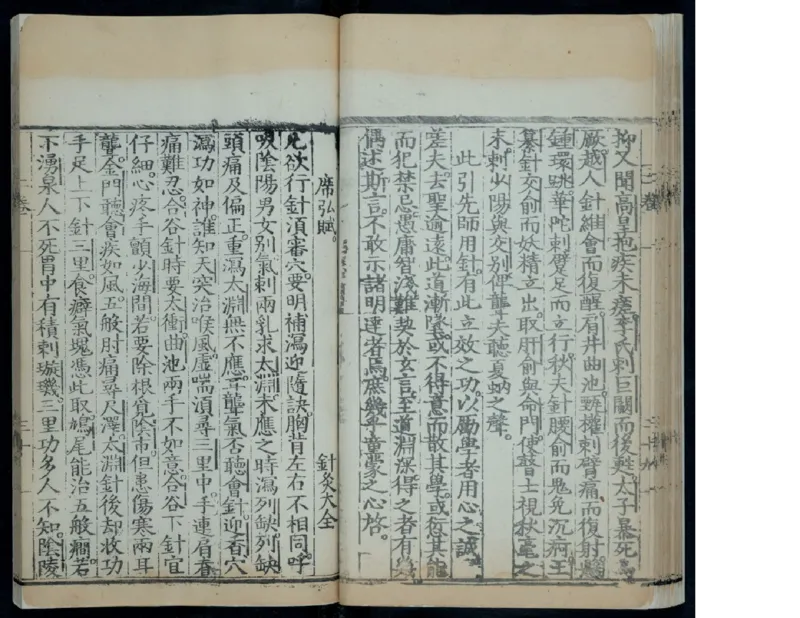 抑又聞高皇抱疾未瘥李氏刺巨闕而後甦太子暴死為
厥越人針維會而復醒肩井曲池甄權刺臂痛而復射
鍾環跳華陀刺躄足而立行秋夫針腰俞而鬼免沉痾王
纂針交俞而妖精立出取肝俞與命門使瞽士視秋毫之
末刺少陽與交別俾聾夫聽夏蚋之聲
此引先師用針有此立效之功以勵學者用心之誠
差夫去聖逾遠此道漸墜或不得意而散其學或愆其能
而犯禁忌愚庸智淺難契於玄言至道淵深得之者有幾
偶述斯言不敢示諸明達者焉庶幾乎童蒙之心啓
席弘賦 針灸大全
凡欲行針須審穴要明補瀉迎隨訣胸背左右不相同呼
吸陰陽男女別氣刺兩乳求太淵未應之時瀉列缺列缺
頭痛及偏正重瀉太淵無不應耳聾氣否聽會針迎香穴
瀉功如神誰知天突治喉風虛喘須尋三里中手連肩脊
痛難忍合谷針時要太衝曲池兩手不如意合谷下針宜
仔細心疼手顫少海間若要除根覓陰市但患傷寒兩耳
聾金門聽會疾如風五般肘痛尋尺澤太淵針後却收功
手足上下針三里食癖氣塊憑此取鳩尾能治五般癇若
下湧泉人不死胃中有積刺璇璣三里功多人不知陰陵